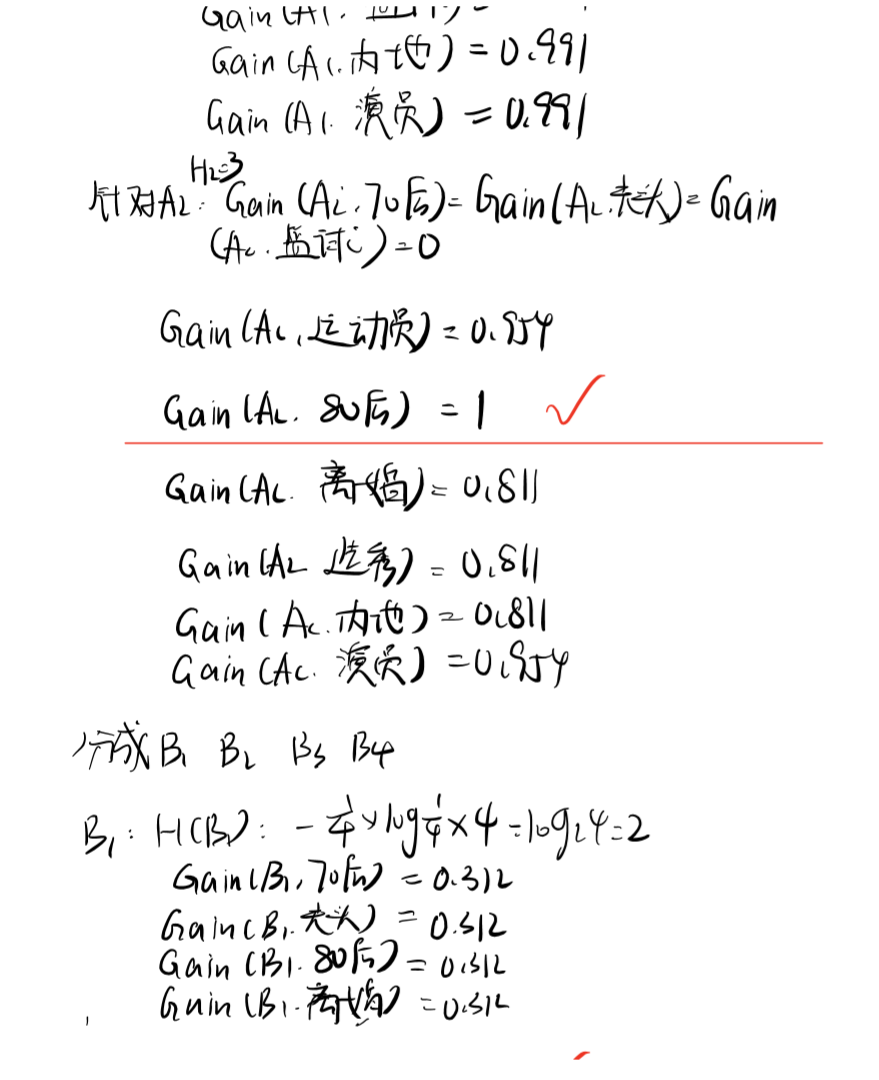 Gain(A1.
Gain(A1.内地)=0.991
Gain(A1.演员)=0.991
H2=3
针对A2: Gain(A2.70后)=Gain(A2.光头)=Gain
(A2.
)=0
Gain(A2.运动员)=0.954
Gain(A2.80后)=1 ✓
Gain(A2.离婚)=0.811
Gain(A2 选秀)=0.811
Gain(A2.内地)=0.811
Gain(A2.演员)=0.954
分成B1 B2 B3 B4
B1: H(B1): -1/4×log1/4×4=log24=2
Gain(B1,70后)=0.312
Gain(B1.光头)=0.312
Gain(B1.80后)=0.312
Gain(B1.离婚)=0.312